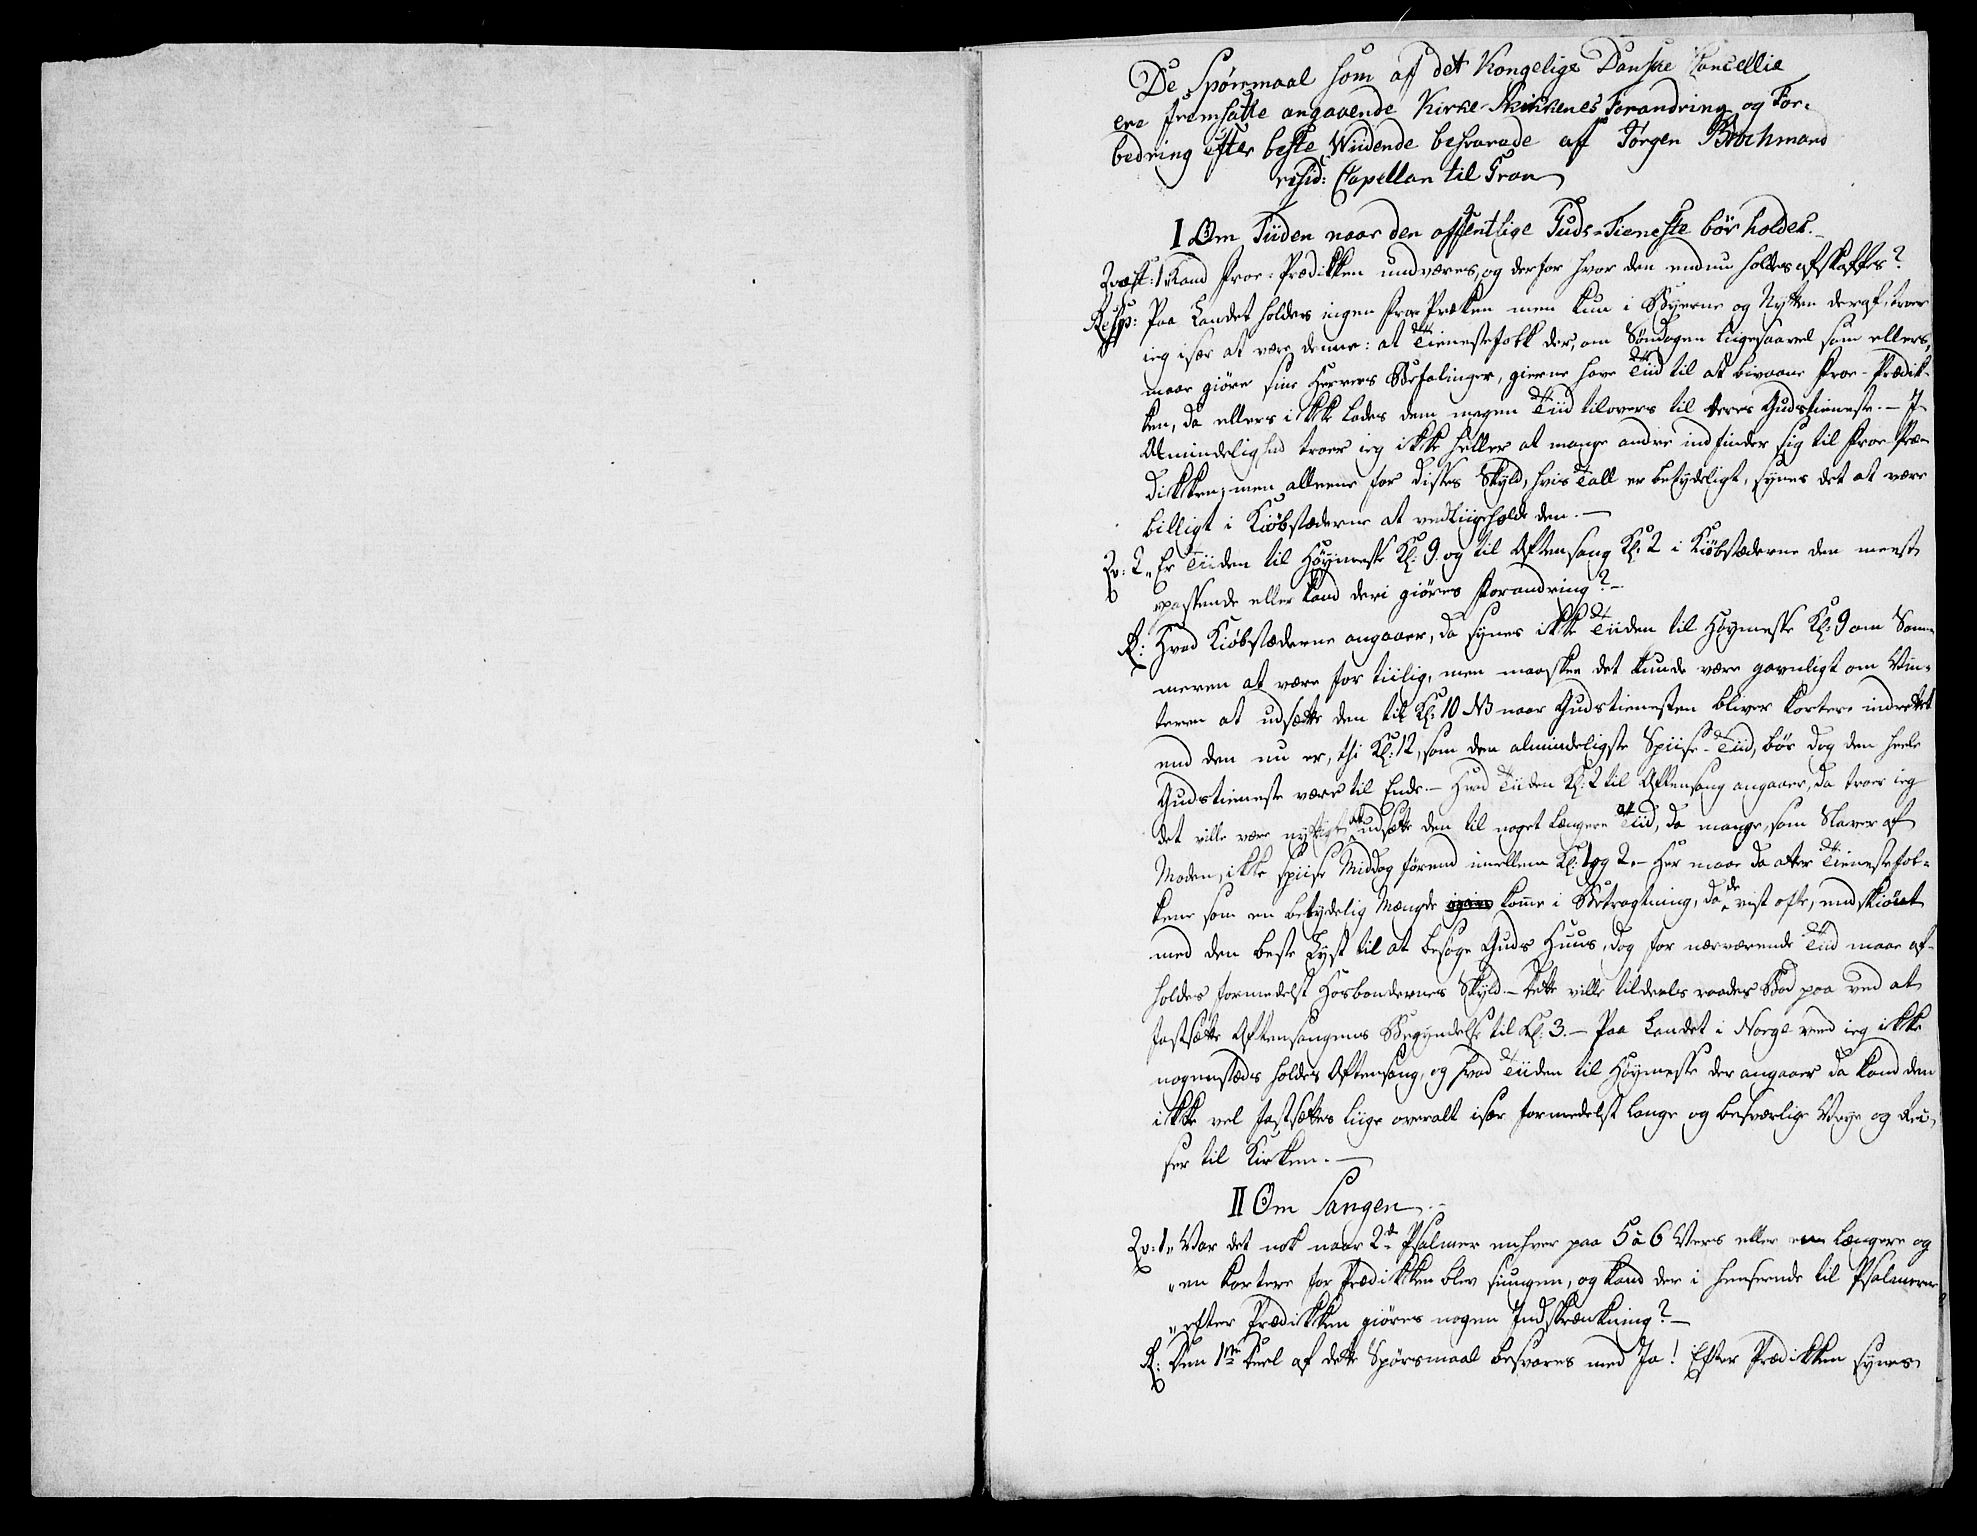 De Spørsmaal som af det Kongelige Danske Cancellie
ere fremsatte angaaende Kirke-Skikkenes Forandring og For-
bedring efter beste Wiidende besvarede af Jørgen Brochmand
resid: Capellan til Gran
I Om Tiiden naar den offentlige Guds-Tieneste bör holdes.
Qvæst: 1 Kand Froe-Prædikken undværes, og derfor hvor den endnu holdes afskaffes?
Resp: Paa Landet holdes ingen Froe Præken men kun i Byerne og Nytten deraf, troer
ieg især at være denne: at Tienestefolk der, om Søndagen liigesaavel som ellers,
maae giöre sine Herrers Befalinger, gierne have Tiid til at bivaane Froe-Prædik-
ken, da ellers ikke lades dem megen Tiid tilovers til deres Gudstieneste. - I
Almindelighed troer ieg ikke heller at mange andre indfinder sig til Froe Præ-
dikken; men alleene for disses Skyld, hvis Tall er betydeligt, synes det at være
billigt i Kiöbstæderne at vedliigeholde den. -
Qv: 2 "Er Tiiden til Höymesse Kl: 9 og til Aftensang Kl: 2 i Kiöbstæderne den meest
"passende eller kand deri giöres Forandring? -
R: Hvad Kiöbstæderne angaaer, da synes ikke Tiiden til Höymesse Kl: 9 om Som-
meren at være for tiilig, men maaskee det kunde være gavnligt om Vin-
teren at udsætte den til Kl: 10 NB naar Gudstienesten bliver kortere indrettet
end den nu er, thi Kl: 12, som den almindeligste Spiise-Tiid, bör dog den heele
Gudstieneste være til Ende. - Hvad Tiiden Kl: 2 til Aftensang angaaer, da troer ieg
det ville være nyttigt at udsætte den til noget længere Tiid, da mange, som Slaver af
Moden, ikke spiise Middag förend imellem Kl: 1 og 2. - Her maae da atter Tienestefol-
kene som en betydelig Mængde komme i Betragtning, da de vist ofte, endskiönt
med den beste Lyst til at besöge Guds Huus, dog for nærværende Tiid maae af-
holdes formedelst Hosbondernes Skyld. - Dette ville tildeels raades Bod paa ved at
fastsætte Aftensangens Begyndelse til Kl: 3. - Paa Landet i Norge veed ieg ikke
nogenstæds holdes Aftensang, og hvad Tiiden til Höymesse der angaaer da kand den
ikke vel fastsættes liige overalt især formedelst lange og besværlige Veye og Rei-
ser til Kirken. -
II Om Sangen. -
Qv: 1 "Var det nok naar 2de Psalmer enhver paa 5 a 6 Vers eller en længere og
"en kortere for Prædikken blev siungen, og kand der i henseende til Psalmerne
"efter Prædikken giöres nogen Indskrænkning? -
R: Den 1ste Deel af dette Spörsmaal besvares med Ja! Efter Prædikken synes